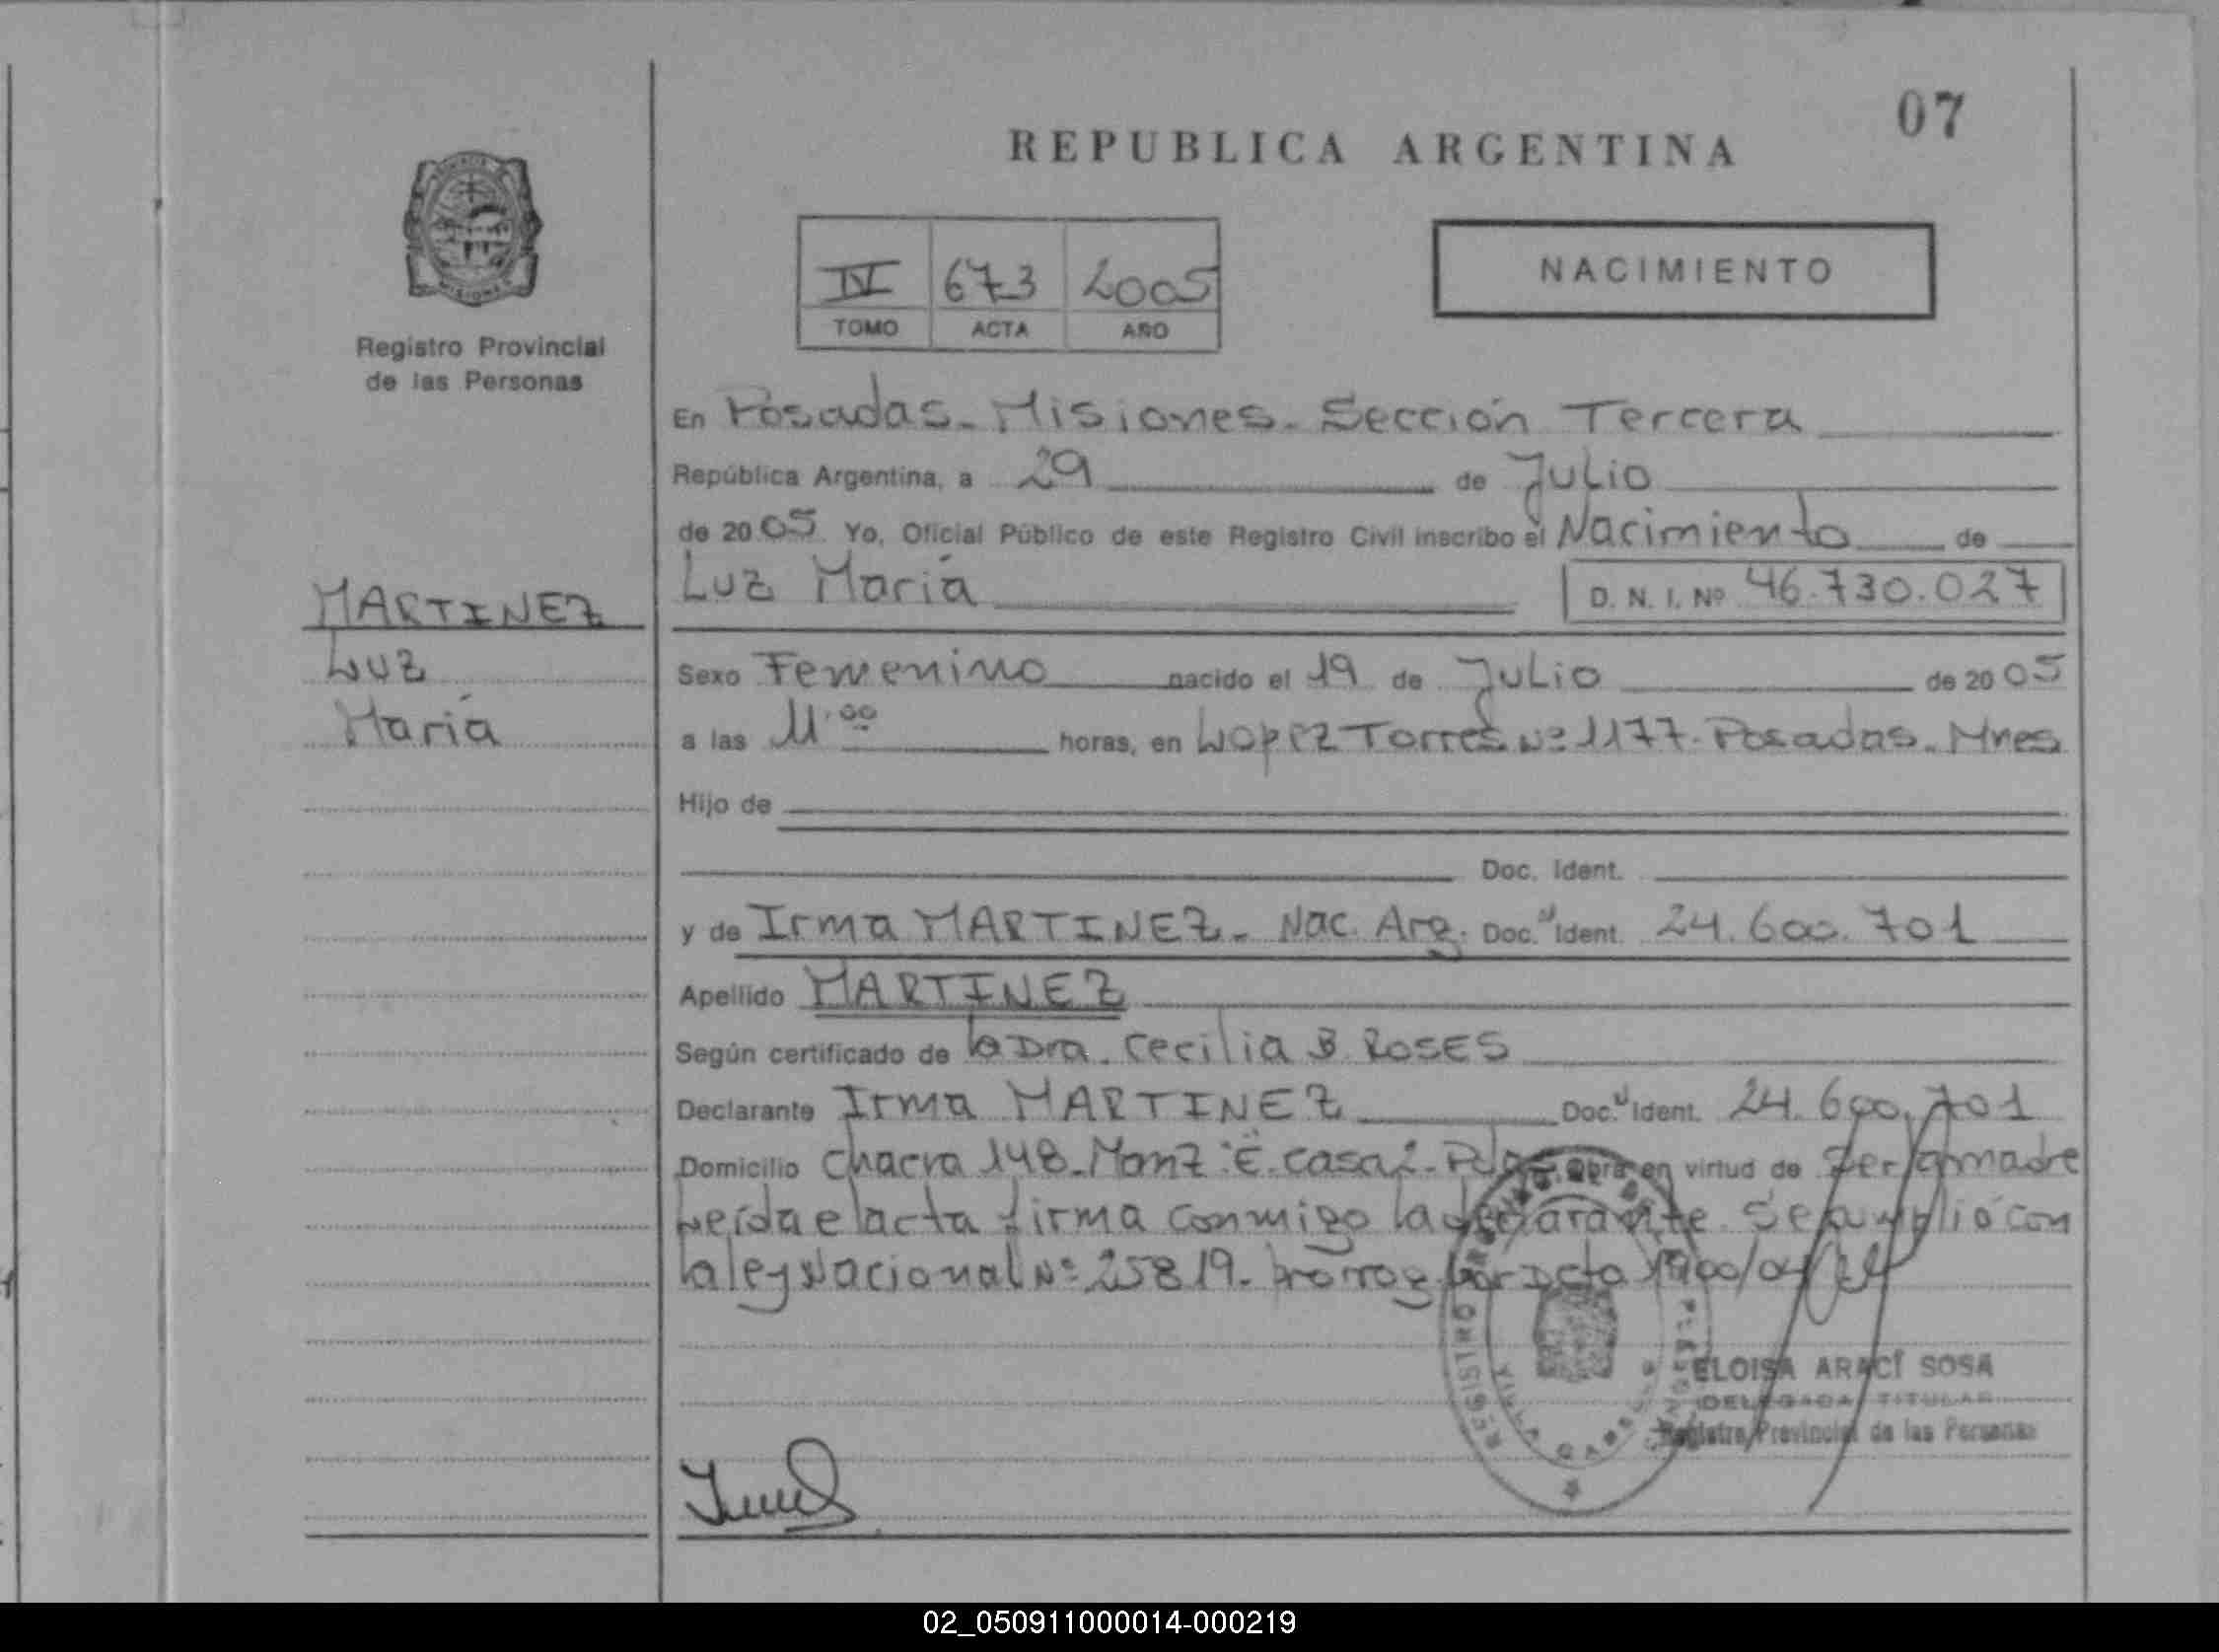 07
REPUBLICA ARGENTINA
NACIMIENTO
IV 673 2005
TOMO ACTA AÑO
Registro Provincial
de las Personas
MARTINEZ
Luz
María
En Posadas - Misiones - Sección Tercera
República Argentina, a 29 de Julio
de 2005 Yo, Oficial Público de este Registro Civil inscribo el Nacimiento de
Luz María D. N. I. Nº 46.730.027
Sexo Femenino nacido el 19 de Julio de 2005
a las 11:00 horas, en Lopez Torres Nº 1177 - Posadas - Mnes
Hijo de
Doc. Ident.
y de Irma MARTINEZ - Nac. Arg. Doc. Ident. 24.600.701
Apellido MARTINEZ
Según certificado de la Dra. Cecilia B. ROSES
Declarante Irma MARTINEZ Doc. Ident. 24.600.701
Domicilio Chacra 148 - Manz "E" casa 2 - Pdas obra en virtud de ser la madre
Leída el acta firma conmigo la declarante. Se cumplió con
la ley Nacional Nº 25819 - prorrog. por Dcto
ELOISA ARACÍ SOSA
DELEGADA TITULAR
Registro Provincial de las Personas
02_050911000014-000219